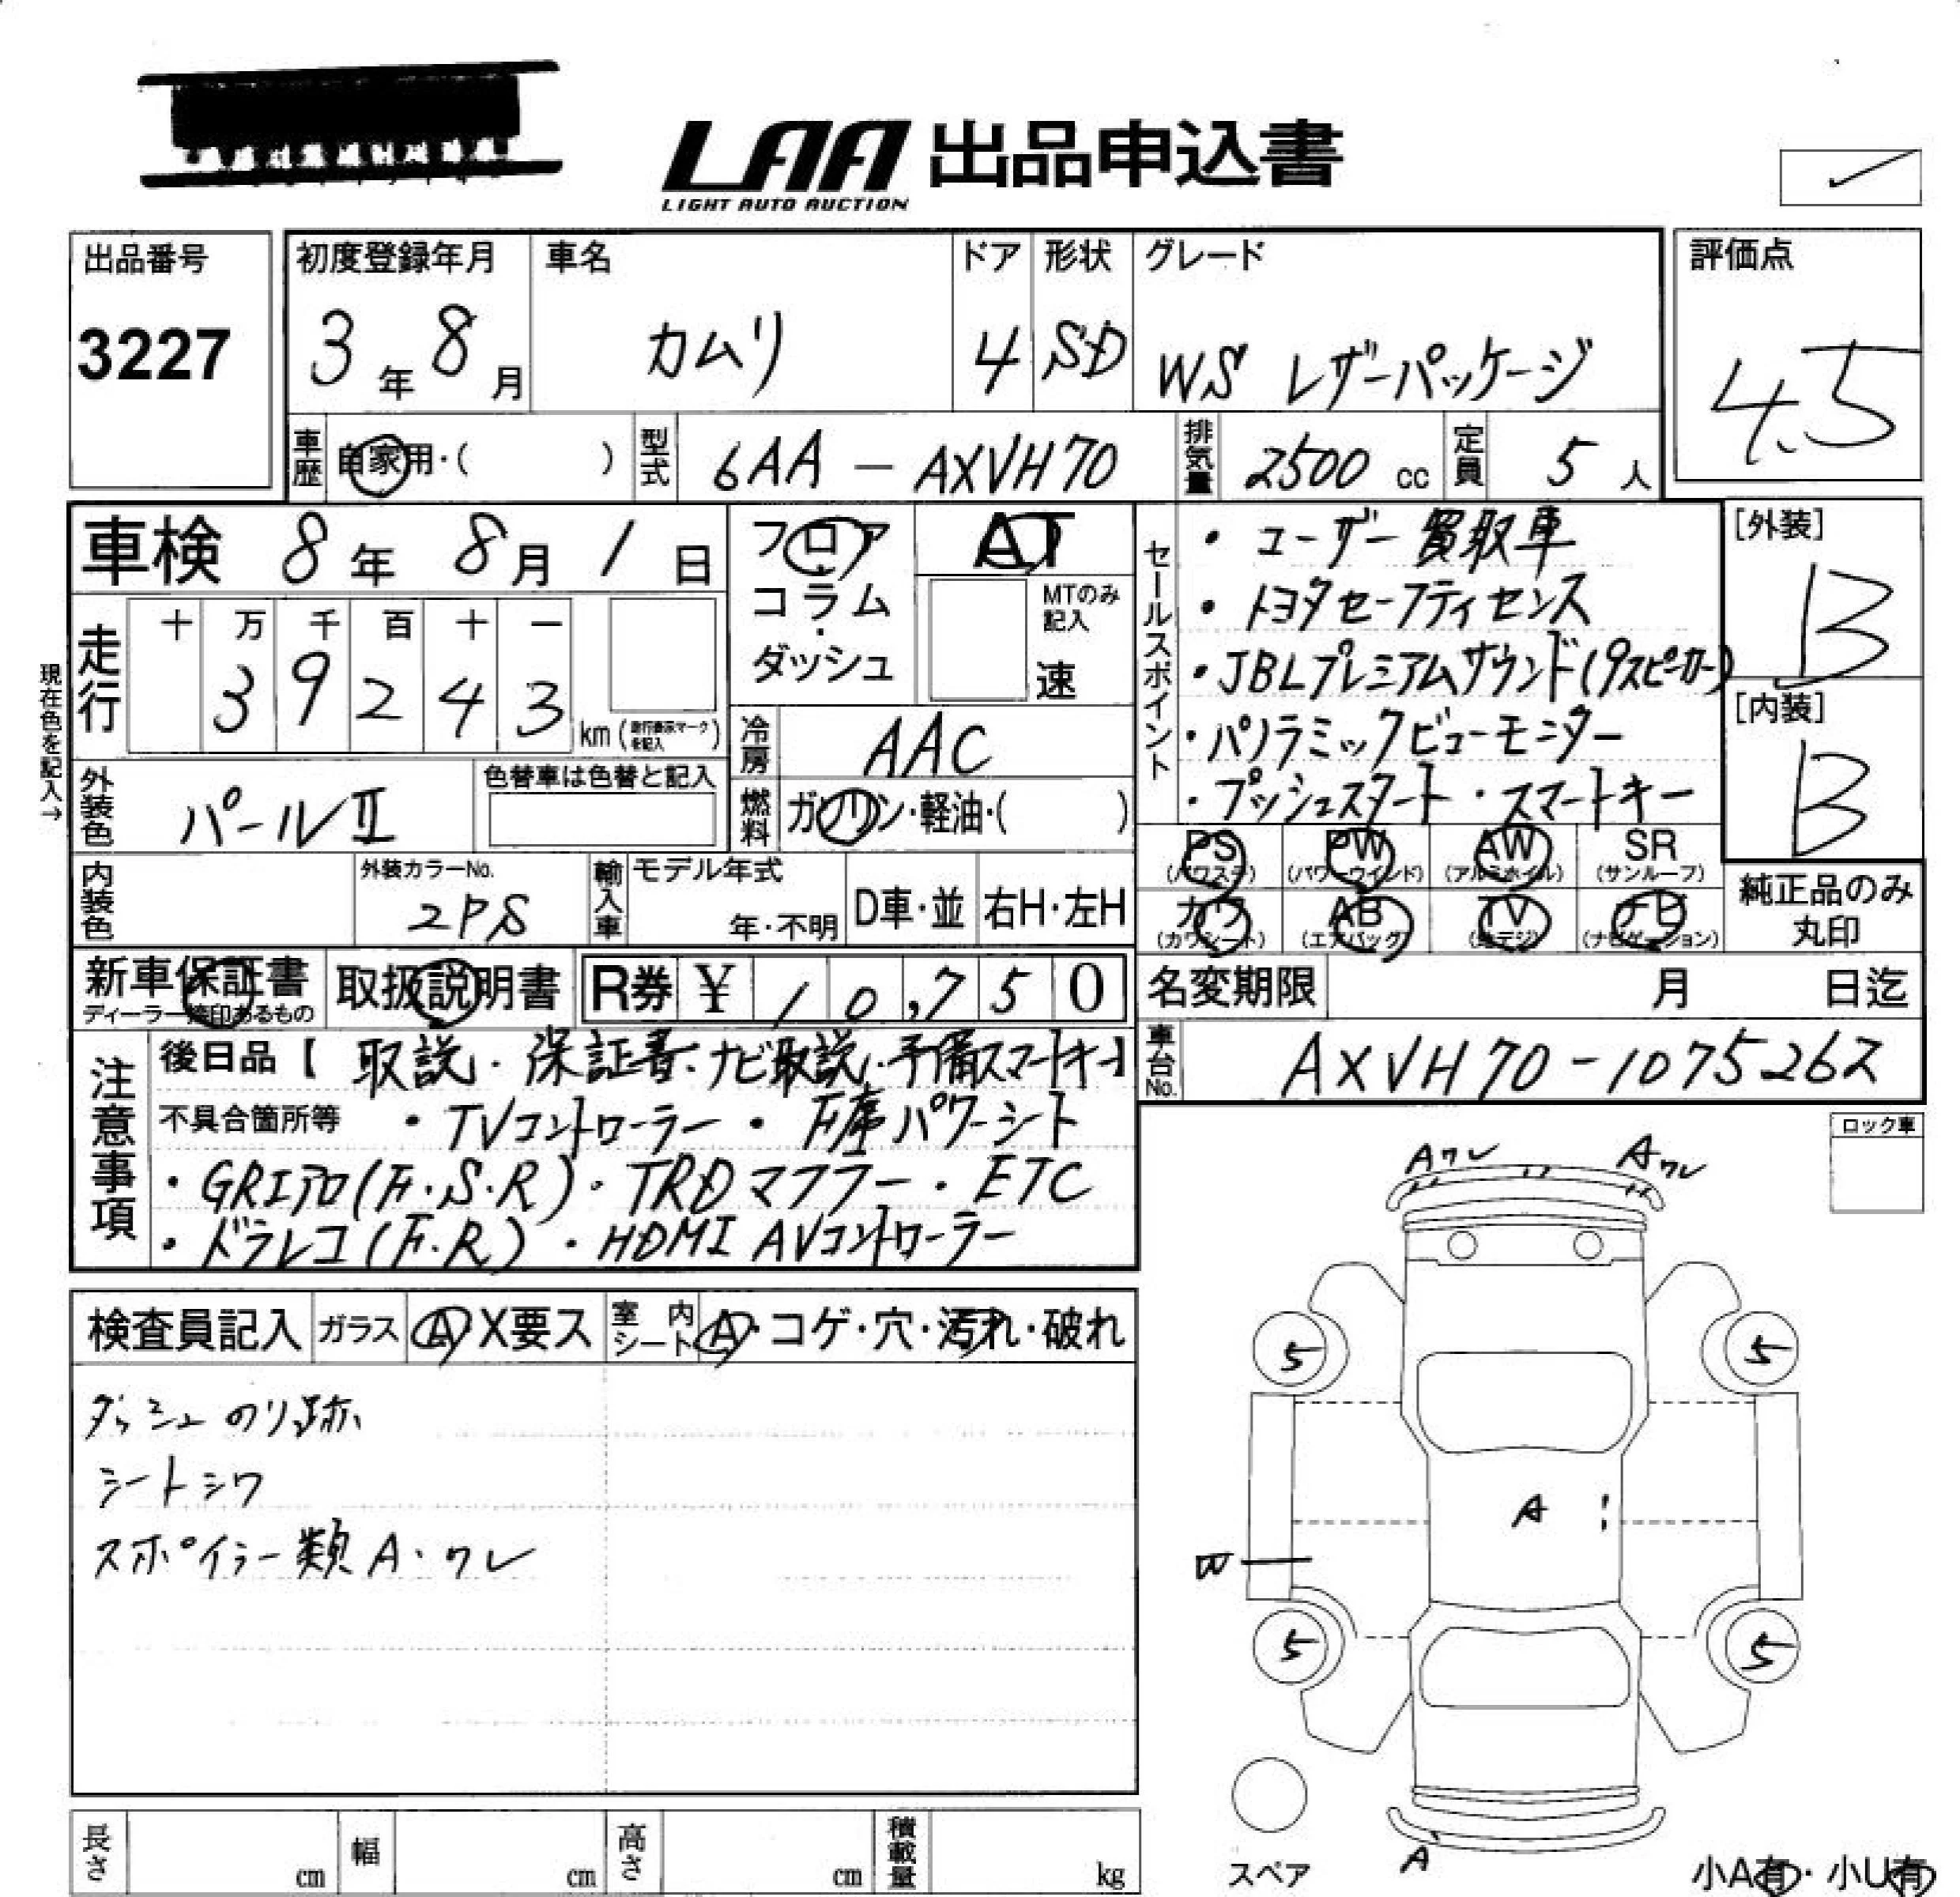 LAA 出品申込書
LIGHT AUTO AUCTION
出品番号
3227
初度登録年月
3年 8月
車名
カムリ
ドア
4
形状
SD
グレード
WS レザーパッケージ
評価点
4.5
車歴
自家用・( )
型式
6AA - AXVH70
排気量
2500 cc
定員
5 人
車検 8年 8月 1日
フロア・コラム・ダッシュ
AT
MTのみ記入
速
現在色を記入→
走行
十 万 千 百 十 一
3 9 2 4 3
km (走行表示マークを記入)
冷房
AAC
外装色
パールⅡ
色替車は色替と記入
燃料
ガソリン・軽油・( )
内装色
外装カラーNo.
2PS
輸入車
モデル年式
年・不明
D車・並
右H・左H
セールスポイント
・ユーザー買取車
・トヨタセーフティセンス
・JBLプレミアムサウンド(9スピーカー)
・パノラミックビューモニター
・プッシュスタート・スマートキー
[外装]
B
[内装]
B
PS (パワステ)
PW (パワーウインド)
AW (アルミホイル)
SR (サンルーフ)
カワ (カワシート)
AB (エアバッグ)
TV (地デジ)
ナビ (ナビゲーション)
純正品のみ丸印
新車保証書
ディーラー捺印あるもの
取扱説明書
R券 ¥ 10,750
名変期限 月 日迄
車台No.
AXVH70-1075262
注意事項
後日品【取説・保証書・ナビ取説・予備スマートキー】
不具合箇所等 ・TVコントローラー・F席パワーシート
・GRエアロ(F.S.R)・TRDマフラー・ETC
・ドラレコ(F.R)・HDMI AVコントローラー
ロック車
検査員記入
ガラス
A X要ス
室内シート
A・コゲ・穴・汚れ・破れ
ダッシュのり跡
シートシワ
スポイラー類A・ワレ
Aワレ
Aワレ
5
5
A
W
5
5
A
スペア
小A有・小U有
長さ cm
幅 cm
高さ cm
積載量 kg